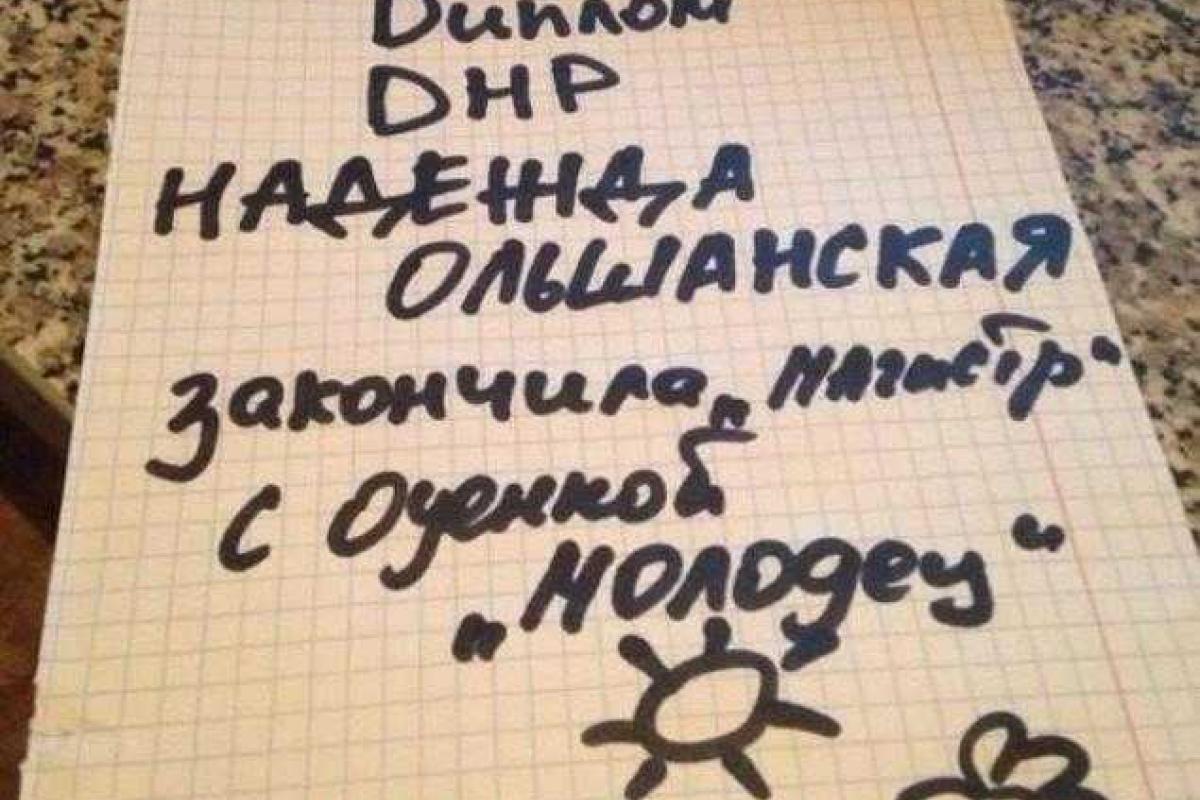 Диплом
DНР
НАДЕЖДА
ОЛЬШАНСКАЯ
закончила „Магистр“
с Оценкой
„Молодец“